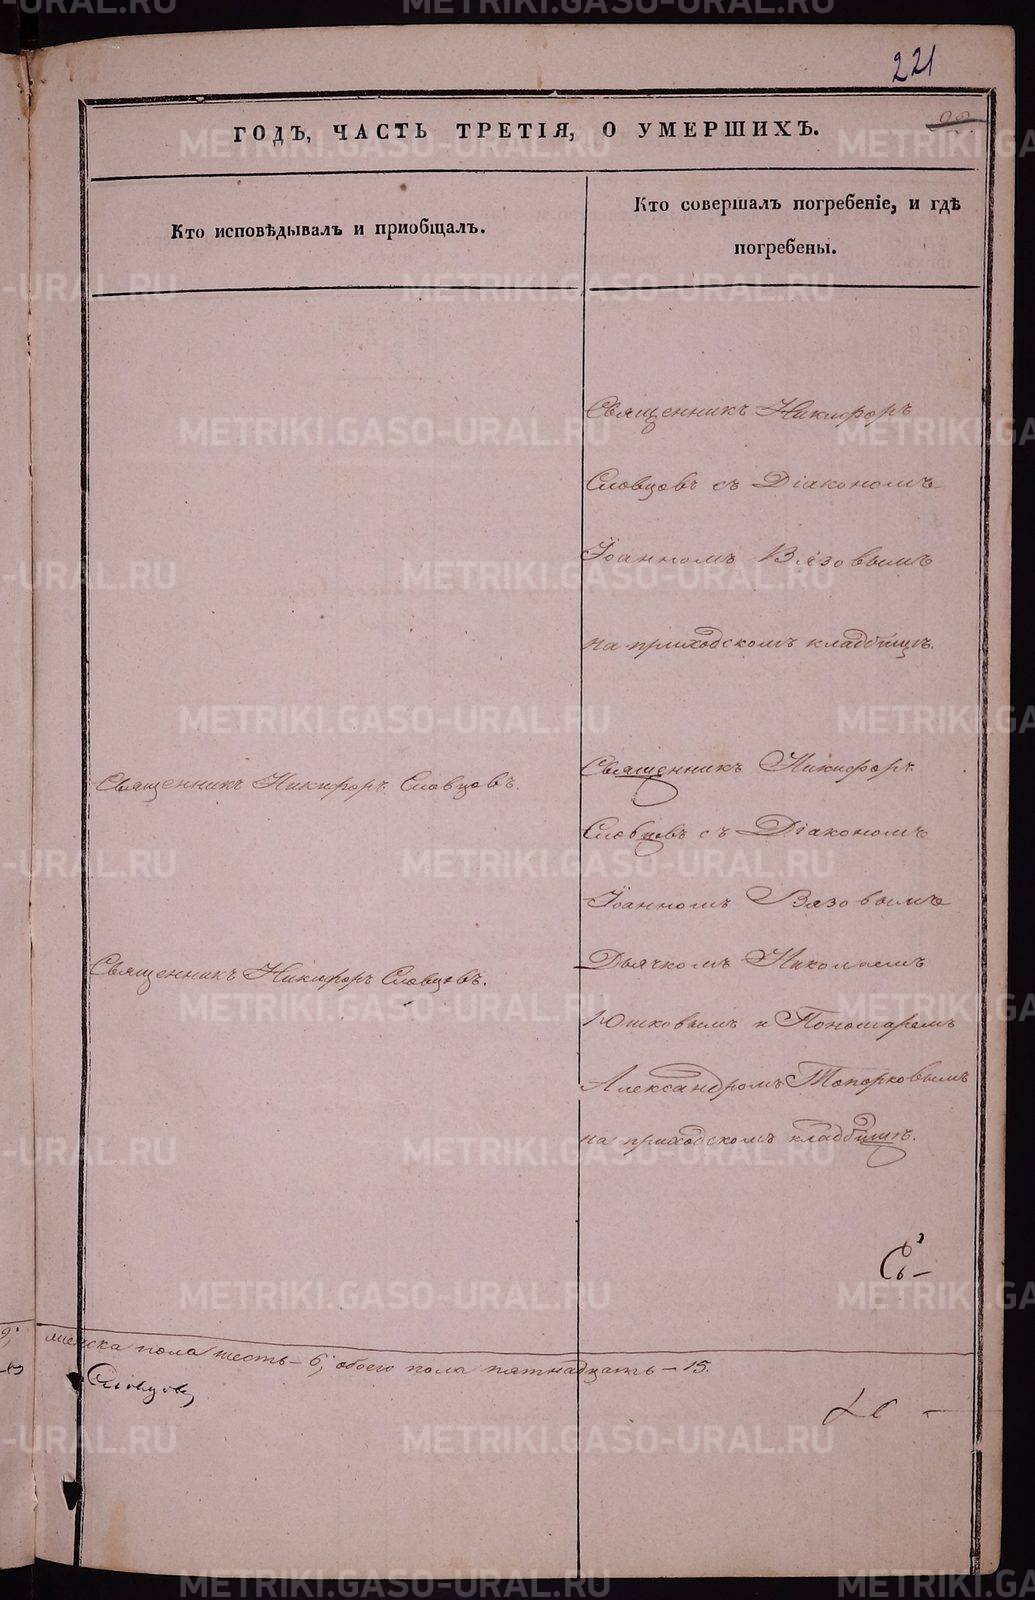 221
ГОДЪ, ЧАСТЬ ТРЕТІЯ, О УМЕРШИХЪ.
Кто исповѣдывалъ и пріобщалъ.
Кто совершалъ погребеніе, и гдѣ
погребены.
Священникъ Никифоръ
Словцовъ съ Діакономъ
Іоанномъ Вязовымъ
на приходскомъ кладбищѣ.
Священникъ Никифоръ Словцовъ.
Священникъ Никифоръ
Словцовъ съ Діакономъ
Іоанномъ Вязовымъ
Священникъ Никифоръ Словцовъ.
Дьячкомъ Николаемъ
Юшковымъ и Пономаремъ
Александромъ Топорковымъ
на приходскомъ кладбищѣ.
женска пола шесть – 6; обоего пола пятнадцать – 15.
Словцовъ
METRIKI.GASO-URAL.RU